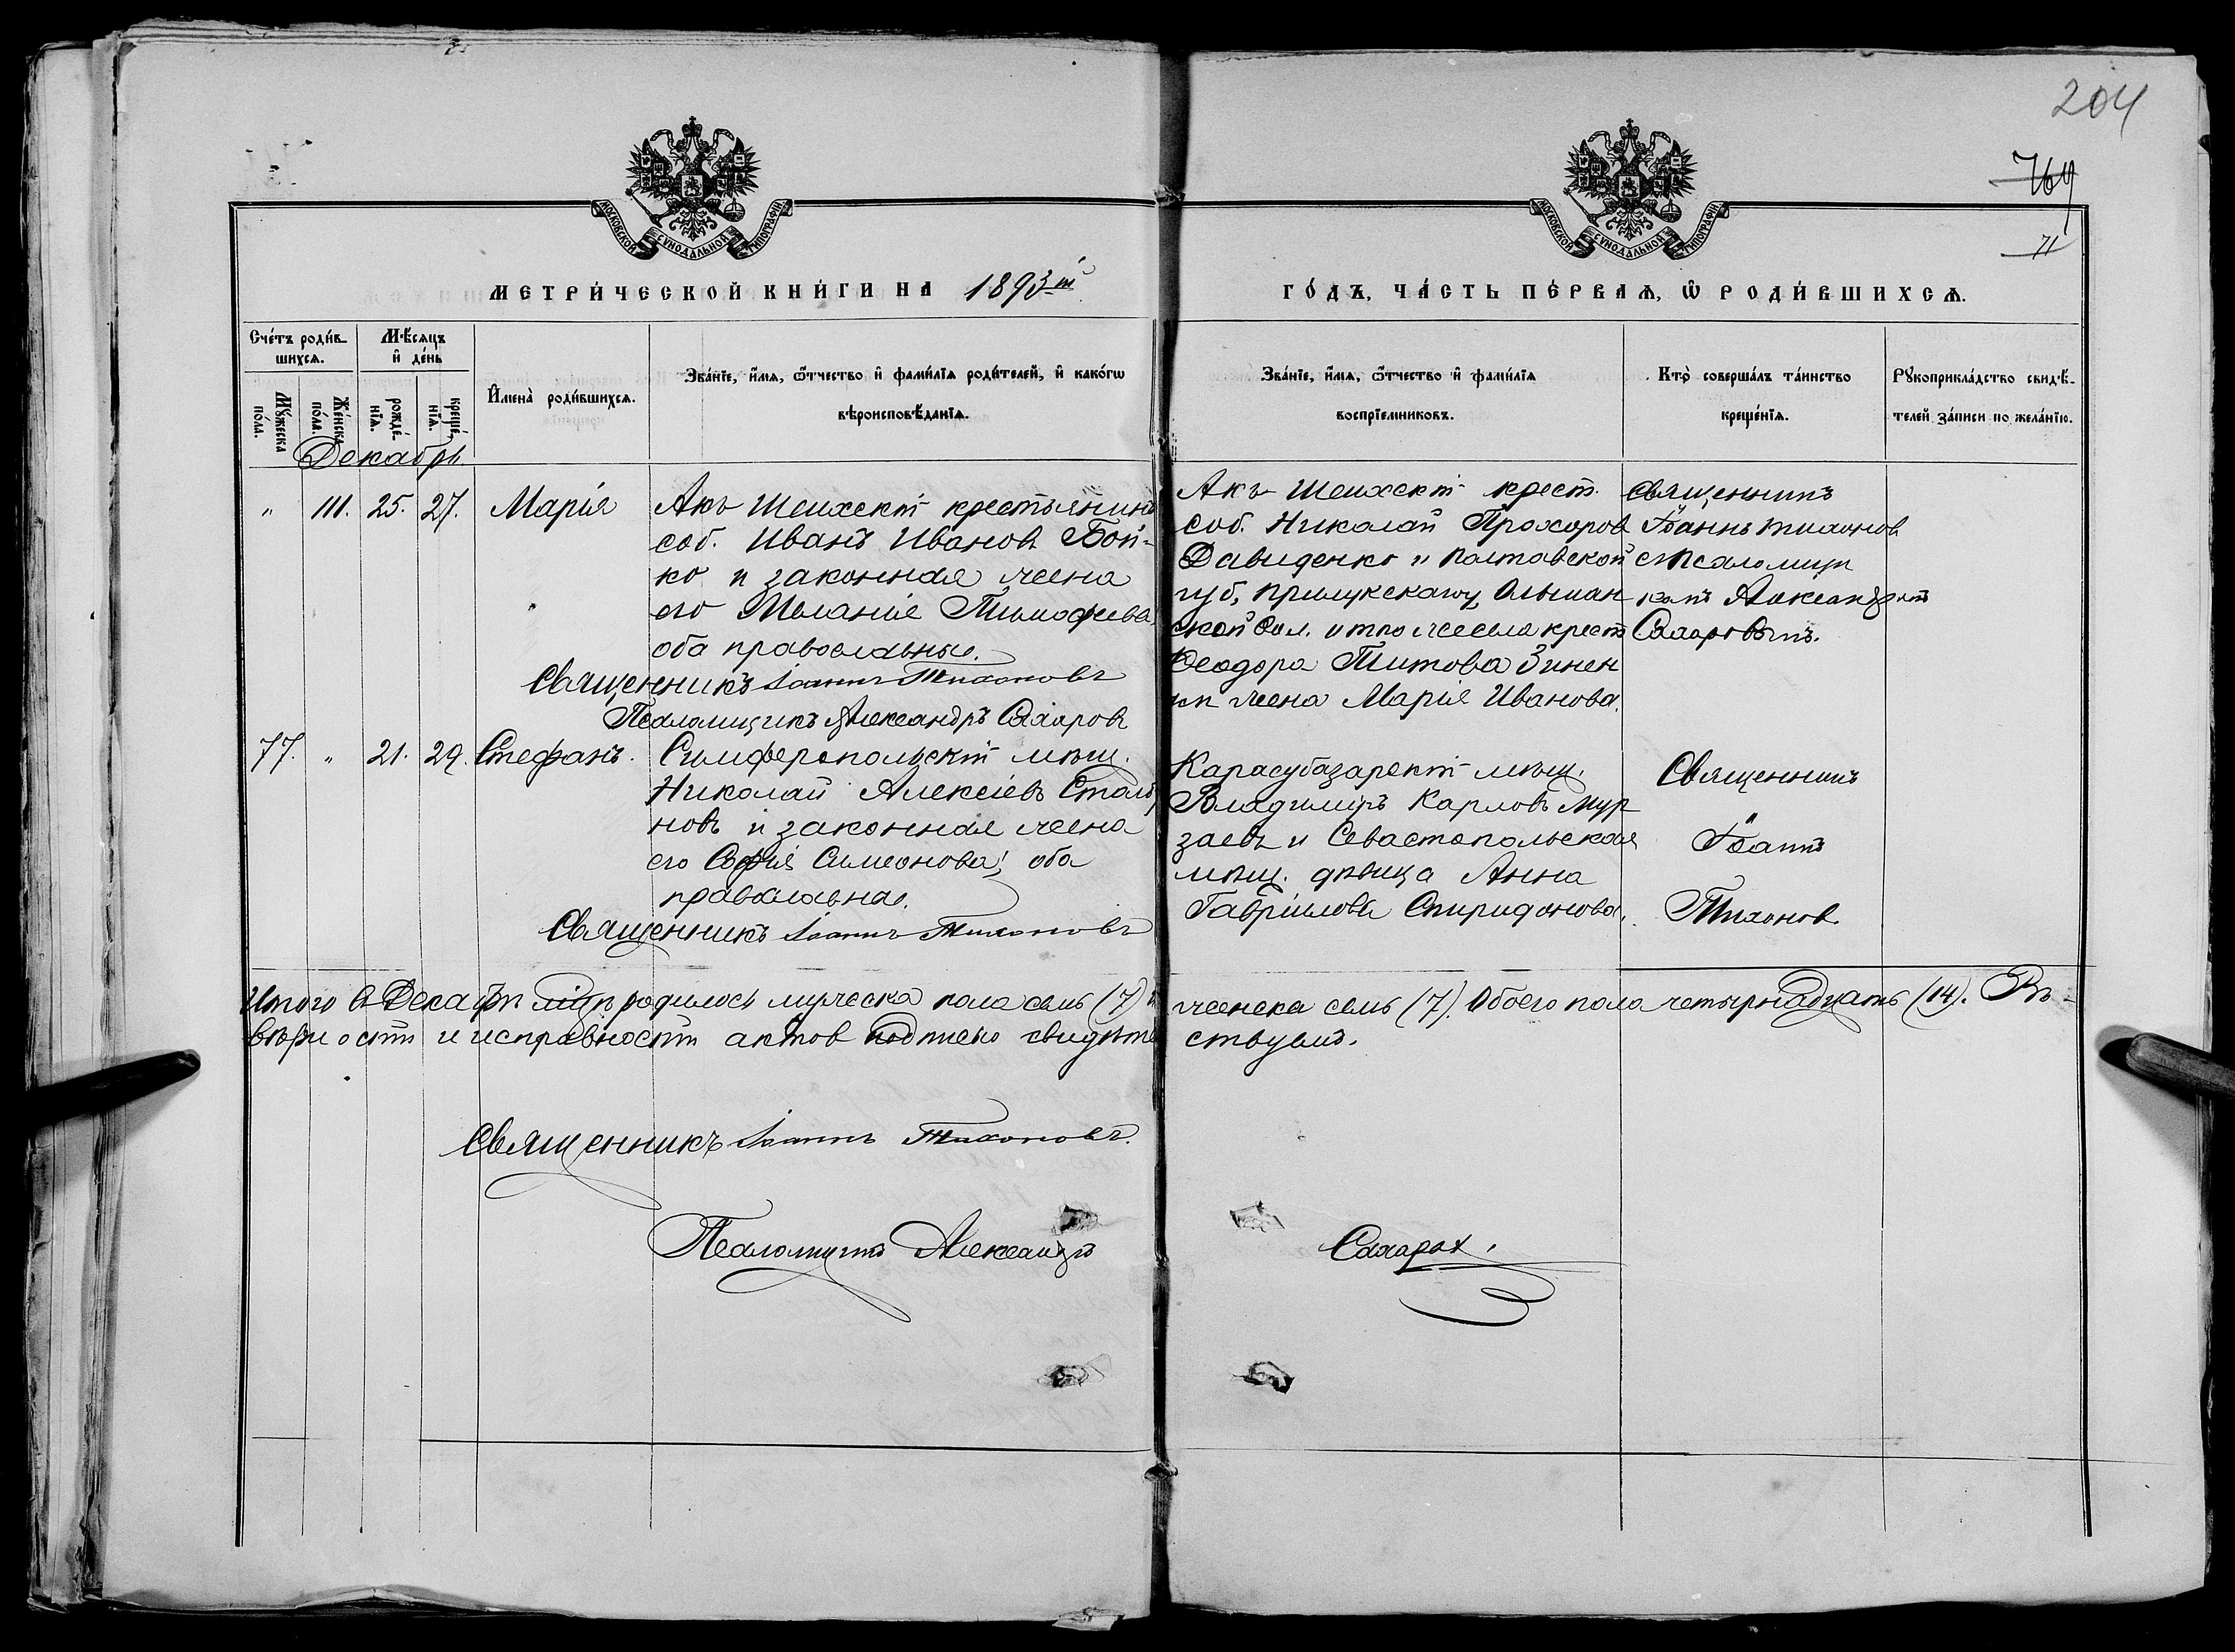 204
769
71
МОСКОВСКОЙ СѴНОДАЛЬНОЙ ТИПОГРАФІИ
МОСКОВСКОЙ СѴНОДАЛЬНОЙ ТИПОГРАФІИ
МЕТРИ́ЧЕСКОЙ КНИ́ГИ НА 1893-й
ГО́ДЪ, ЧА́СТЬ ПЕ́РВАѦ, Ѡ҆ РОДИ́ВШИХСѦ.
Сче́тъ роди́в-
шихсѧ.
Мѣ́сѧцъ
и҆ де́нь
Мꙋ́жеска
по́ла.
Же́нска
по́ла.
рожде́-
нїѧ.
креще́-
нїѧ.
И҆мена̀ роди́вшихсѧ.
Зва́нїе, и҆́мѧ, ѻ҆́тчество и҆ фами́лїѧ роди́телей, и҆ како́гѡ
вѣроисповѣ́данїѧ.
Зва́нїе, и҆́мѧ, ѻ҆́тчество и҆ фами́лїѧ
воспрїе́мниковъ.
Кто̀ соверша́лъ та́инство
креще́нїѧ.
Рꙋкоприкла́дство свидѣ́-
телей за́писи по жела́нїю.
Декабрь
" 111. 25. 27. Марія
Акъ Шеихскій крестьянинъ
соб. Иванъ Иванов Бой-
ко и законная жена
его Меланія Тимофеева,
оба православные.
Священникъ Іоаннъ Тихоновъ
Псаломщикъ Александръ Сахаров
Акъ-Шеихскій крест.
соб. Николай Прохоров
Давиденко и Полтавской
губ, Прилукскаго у, Ольшан
ской Вол. крест
Феодора Титова Зинен
ки жена Марія Иванова.
Священникъ
Іоаннъ Тихонов
с Псаломщи
комъ Александромъ
Сахаровымъ.
77. " 21. 29. Стефанъ.
Симферопольскій мѣщ.
Николай Алексіевъ Столь
новъ и законная жена
его Софія Симеонова, оба
православные.
Священникъ Іоаннъ Тихоновъ
Карасубазарскій мѣщ.
Владимиръ Карловъ Мур
заевъ и Севастопольская
мѣщ. дѣвица Анна
Гавріилова Спиридонова.
Священникъ
Іоаннъ
Тихонов
Итого в Декабрѣ мцѣ родилось мужеска пола семь (7) и женска семь (7). Обоего пола четырнадцать (14). Въ
вѣрности и исправности актов подписью свидѣтельствуемъ.
Священникъ Іоаннъ Тихоновъ.
Псаломщикъ Александръ Сахаров.